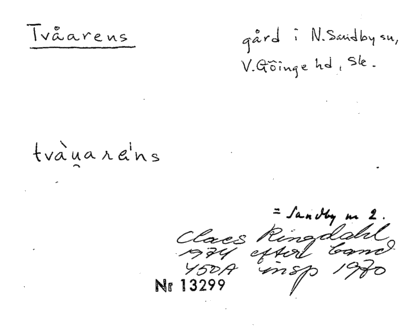 Tvåarens
gård i N. Sandby sn,
V. Göinge hd, Sk.
tvàu̯aréns
= Sandby nr 2.
Claes Ringdahl
1974 efter band
450A insp 1970
Nr 13299